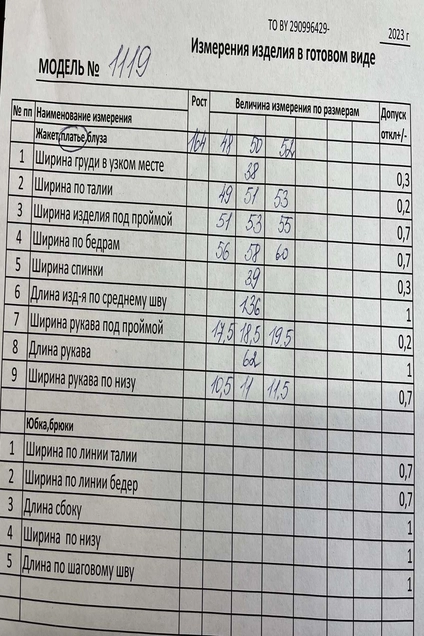 ТО BY 290996429-
2023 г
Измерения изделия в готовом виде
МОДЕЛЬ № 1119
№ пп Наименование измерения Рост Величина измерения по размерам Допуск откл+/-
Жакет,платье,блуза 164 48 50 52
1 Ширина груди в узком месте 38 0,3
2 Ширина по талии 49 51 53 0,2
3 Ширина изделия под проймой 51 53 55 0,7
4 Ширина по бедрам 56 58 60 0,7
5 Ширина спинки 39 0,3
6 Длина изд-я по среднему шву 136 1
7 Ширина рукава под проймой 17,5 18,5 19,5 0,2
8 Длина рукава 62 1
9 Ширина рукава по низу 10,5 11 11,5 0,7
Юбка,брюки
1 Ширина по линии талии 0,7
2 Ширина по линии бедер 0,7
3 Длина сбоку 1
4 Ширина по низу 1
5 Длина по шаговому шву 1